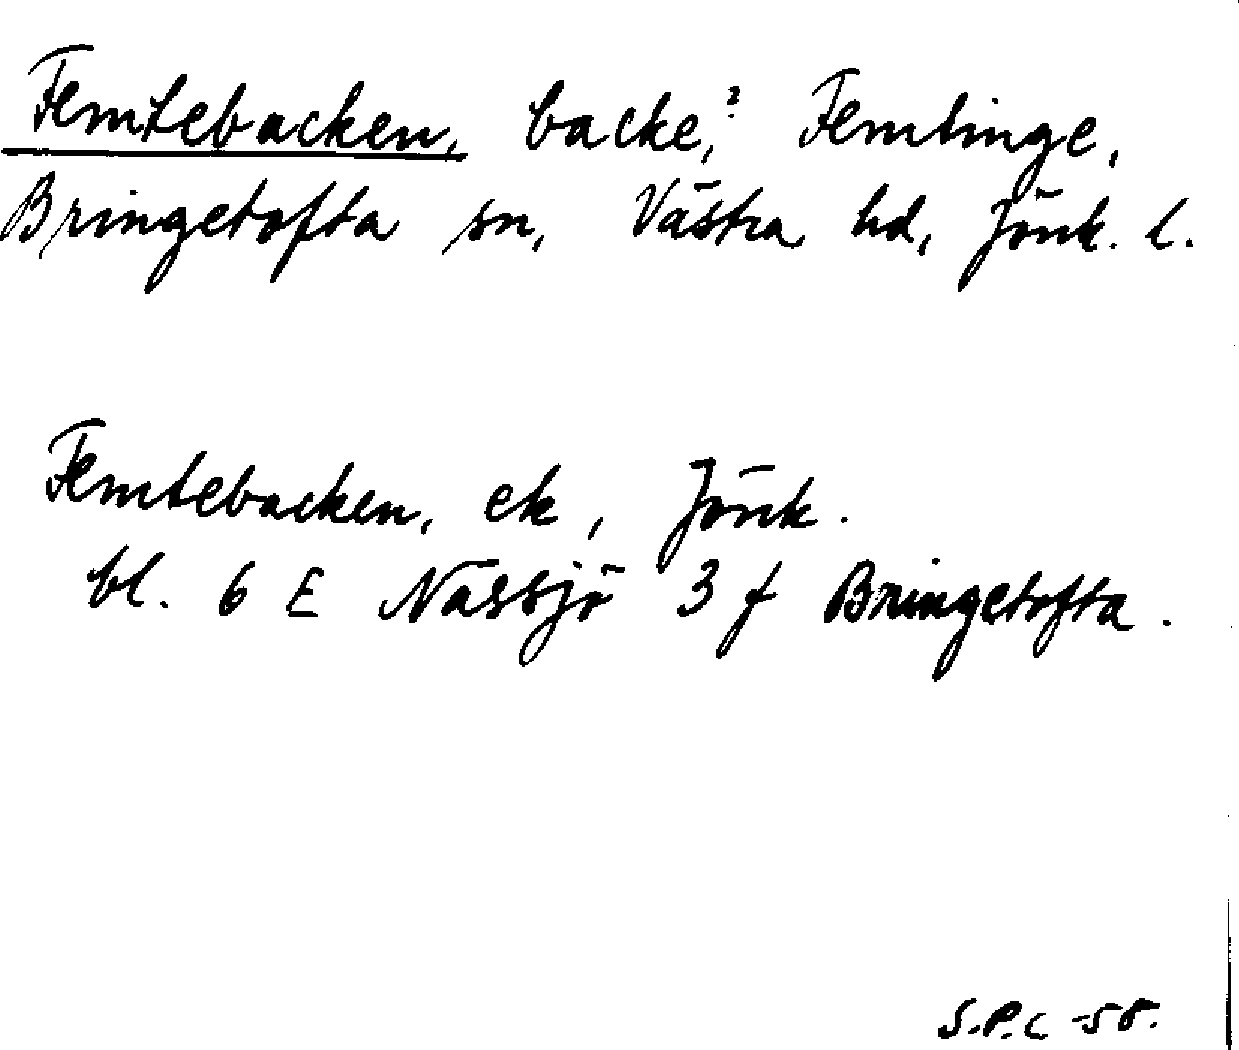 Femtebacken, backe,? Femtinge,
Bringetofta sn, Västra hd, Jönk. l.
Femtebacken, ek, Jönk.
bl. 6 E Nässjö 3 f Bringetofta.
S.P.C -58.